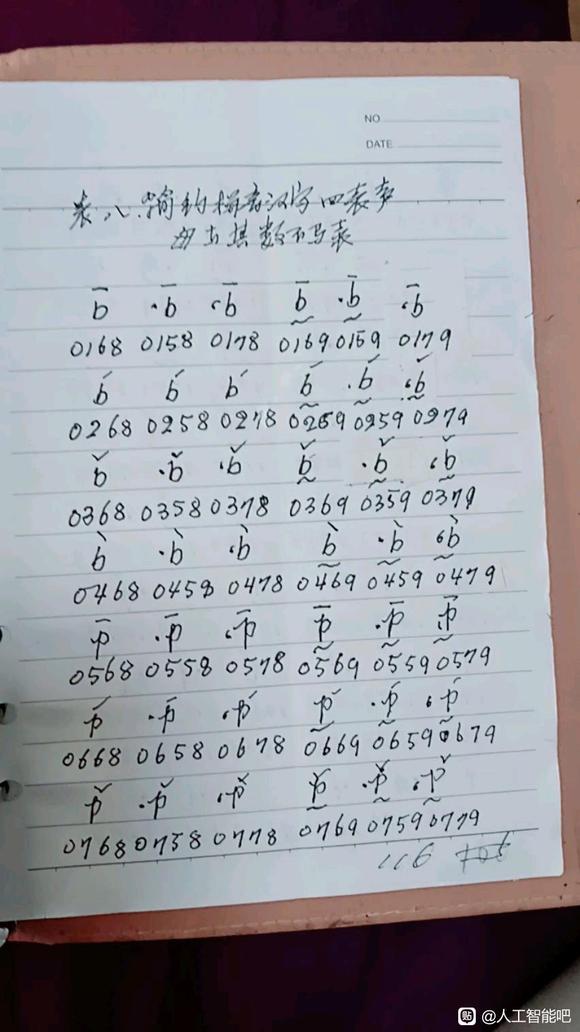 NO
DATE
表八.简约拼音汉字四表声
数不写表
b̄ ·b̄ ،b̄ b̄ ·b̄ ،b̄
0168 0158 0178 0169 0159 0179
b́ b́ b́ b́ ·b́ ،b́
0268 0258 0278 0269 0259 0279
b̌ ·b̌ ،b̌ b̌ ·b̌ ،b̌
0368 0358 0378 0369 0359 0379
b̀ ·b̀ ،b̀ b̀ ·b̀ ،b̀
0468 0458 0478 0469 0459 0479
p̄ ·p̄ ،p̄ p̄ ·p̄ ،p̄
0568 0558 0578 0569 0559 0579
ṕ ·ṕ ،ṕ ṕ ·ṕ ،ṕ
0668 0658 0678 0669 0659 0679
p̌ ·p̌ ،p̌ p̌ ·p̌ ،p̌
0768 0758 0778 0769 0759 0779
贴 @人工智能吧